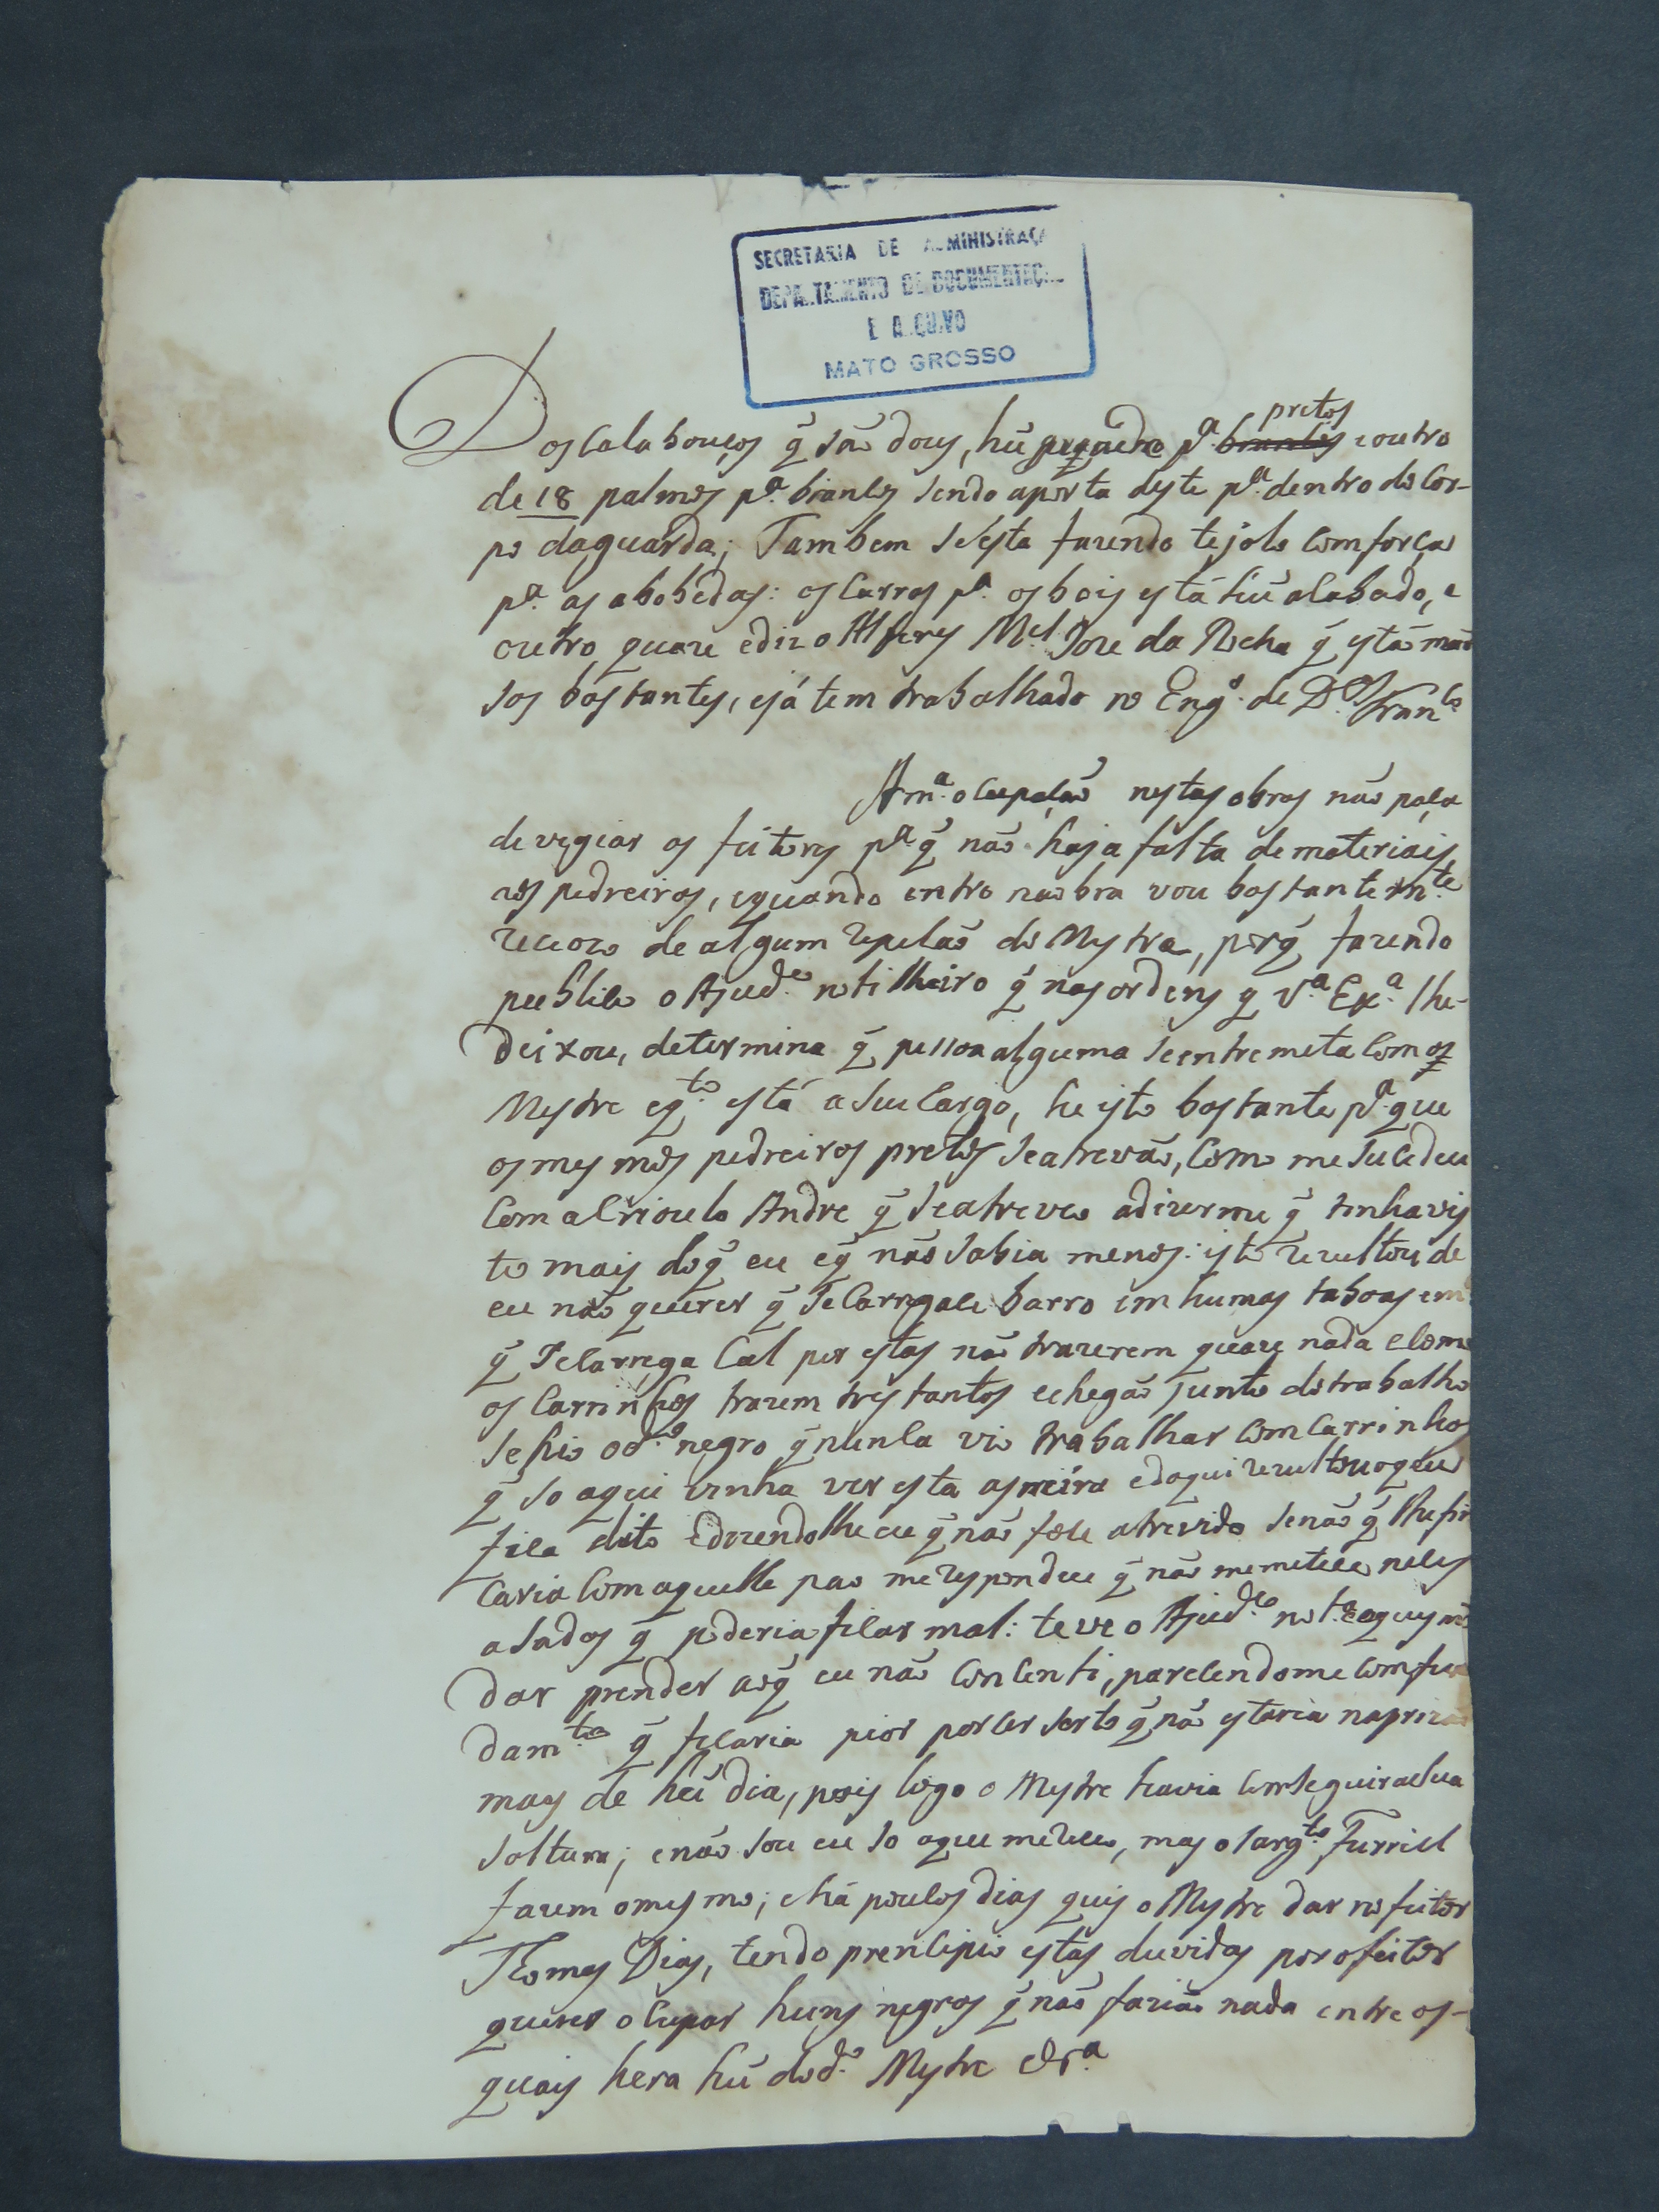 SECRETARIA DE ADMINISTRAÇÃ
DEPARTAMENTO DE DOCUMENTAÇÃO
E ARQUIVO
MATO GROSSO
pretos
Dos Calabouços q̃ saõ dous, hũ pequeno pª brancos e outro
de 18 palmos pª brancos sendo aporta deste pª dentro do Cor-
po daguarda; Tambem sé esta fazendo tejolo Comforça
pª as abobedas: os Carros pª os bois está hũ acabado, e
outro quaze ediz o Alferes Mel Joze da Rocha q̃ estaõ man
sos bastantes, ejá tem trabalhado no Engº de Dos Francº
A mª ocupaçaõ nestas obras naõ paça
de vegiar os feitores pª q̃ naõ haja falta de materiais
aos pedreiros, equando entro naobra vou bastantemte
reciozo de algum repelaõ do Mestre, porq̃ fazendo
publico o Ajude notilheiro q̃ nas ordens q̃ Vª Exª lhe-
deixou, determina q̃ pessoa alguma seentremeta Com os
Mestre eqto está aseu Cargo, he isto bastante pª que
osmesmos pedreiros pretos seatrevaõ, Como me sucedeu
Com oCrioulo Andre q̃ seatreveo adizerme q̃ tinhavis
to mais doq̃ eu eq̃ naõ sabia menos: isto rezultou de
eu naõ querer q̃ seCarregace barro em humas taboas em
q̃ seCarrega Cal por estas naõ trazerem quaze nada eComo
os Carrinhos trazem tres tantos echegaõ junto dotrabalho
se rio odº negro q̃ nunca vio trabalhar Com Carrinhos
q̃ so aqui vinha ver esta asneira edaqui rezultou oque
fica dito edizendolhe eu q̃ naõ foce atrevido senaõ q̃ lhefi
Caria Comaquelle pao me respondeu q̃ naõ memetece neles
asados q̃ poderia ficar mal: teve o Ajude notª equis man
dar prender aoq̃ eu naõ Concenti, parecendome Comfun
damto q̃ ficaria pior por cer serto q̃ naõ estaria naprizaõ
mais de hũ dia, pois logo o Mestre havia Comseguir asua
soltura; enaõ sou eu so aque mereceo, mas osargto Furriel
fazem omesmo; ehá poucos dias quis o Mestre dar no feitor
Thomas Dias, tendo prencipio estas duvidas por ofeitor
querer ocupar huns negros q̃ naõ faziaõ nada entre os-
quais hera hũ dodº Mestre &rª